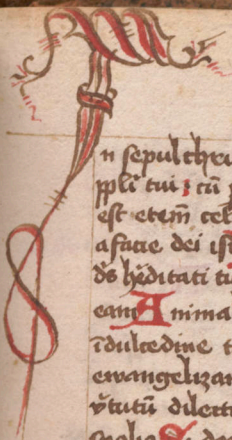 In sepulchru
ppli tui : cū
est etem̄ cel
a facie dei is
ds hēditati tu
eam Anima
ī dulcedine t
ewangelizan
v̄tutū dilect